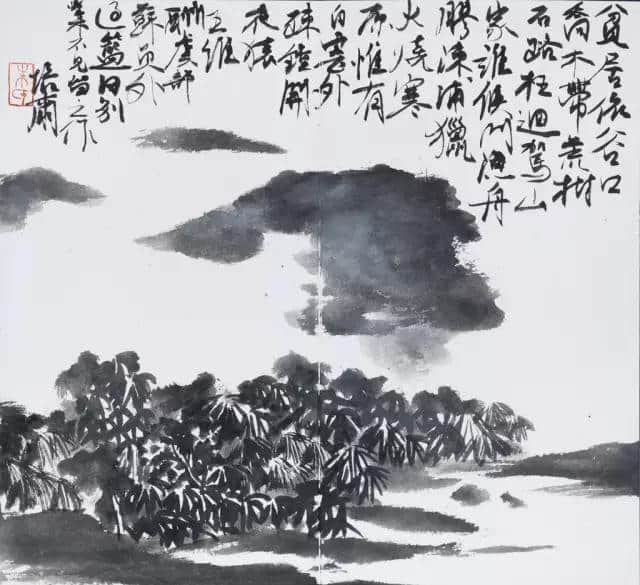 貧居依谷口
喬木帶荒村
石路枉迴駕山
家誰候門漁舟
膠凍浦獵
火燒寒
原惟有
白雲外
疎鐘聞
夜猿
王維
酬虞部
蘇員外
過藍田別
業不見留之作